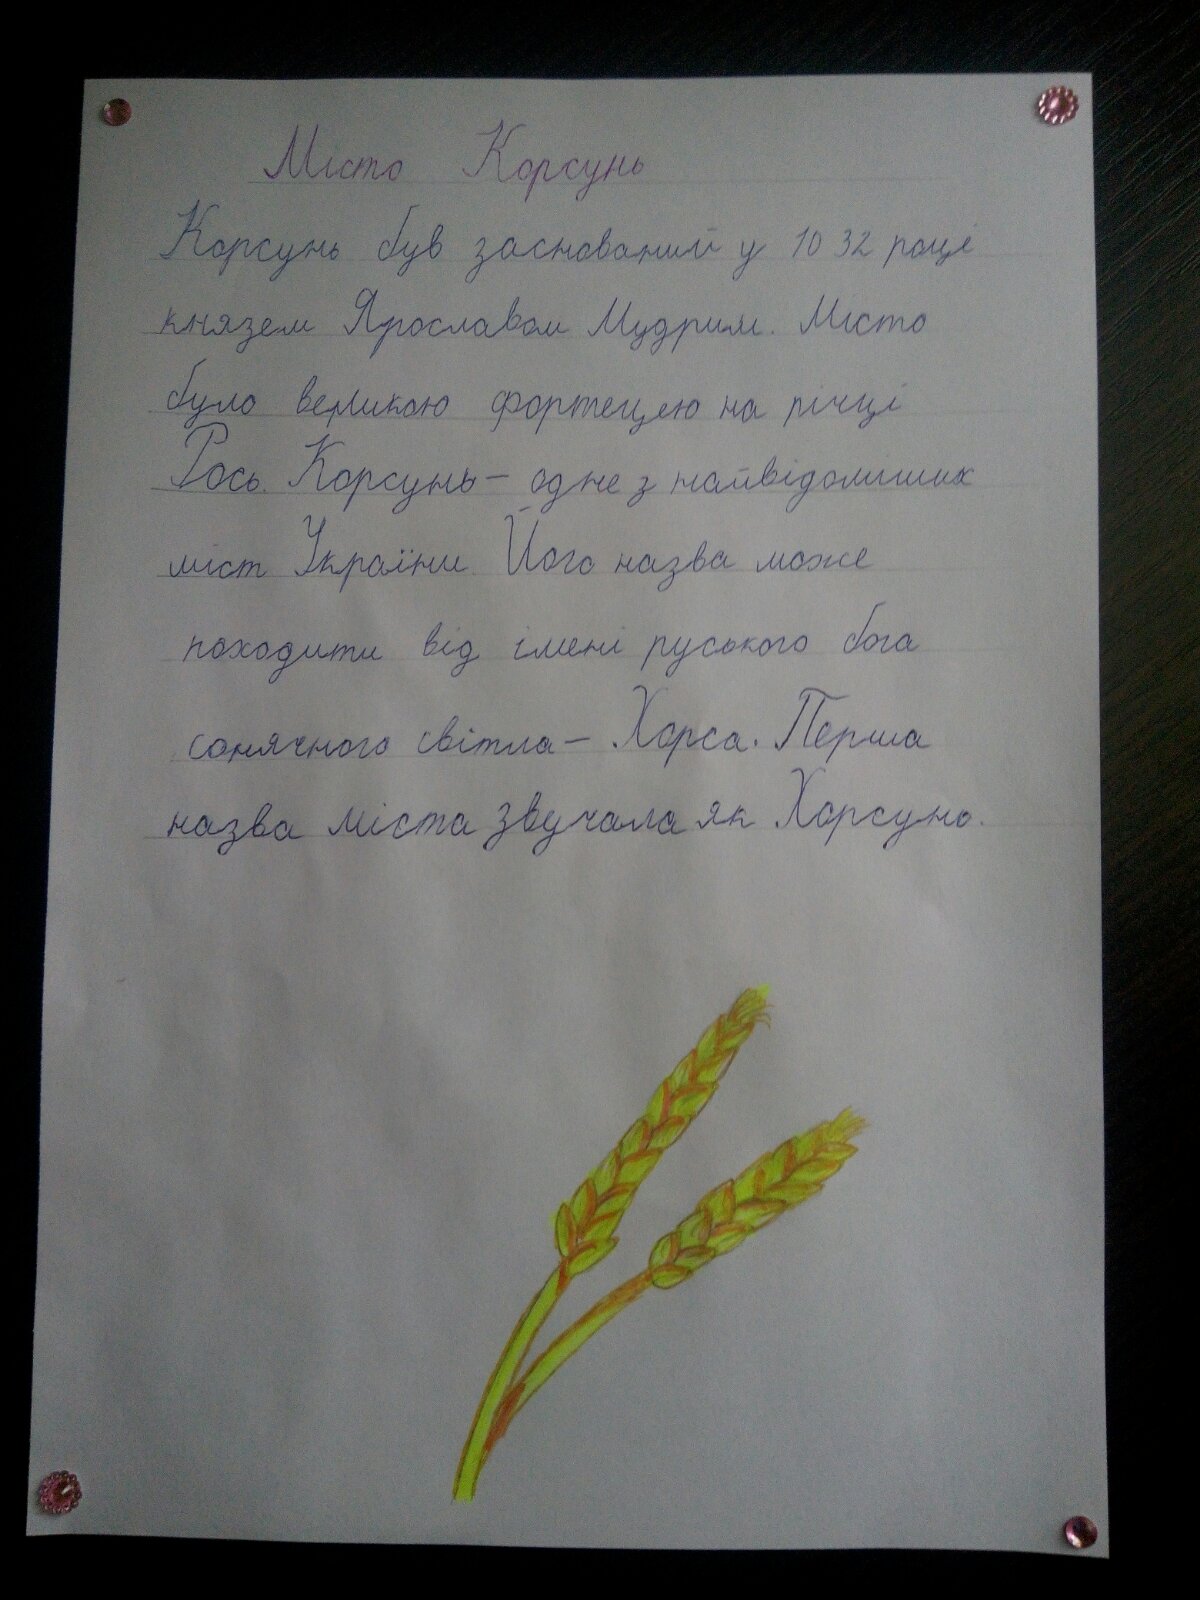 Місто Корсунь
Корсунь був заснований у 1032 році
князем Ярославом Мудрим. Місто
було великою фортецею на річці
Рось. Корсунь – одне з найвідоміших
міст України. Його назва може
походити від імені руського бога
сонячного світла – Хорса. Перша
назва міста звучала як Хорсунь.